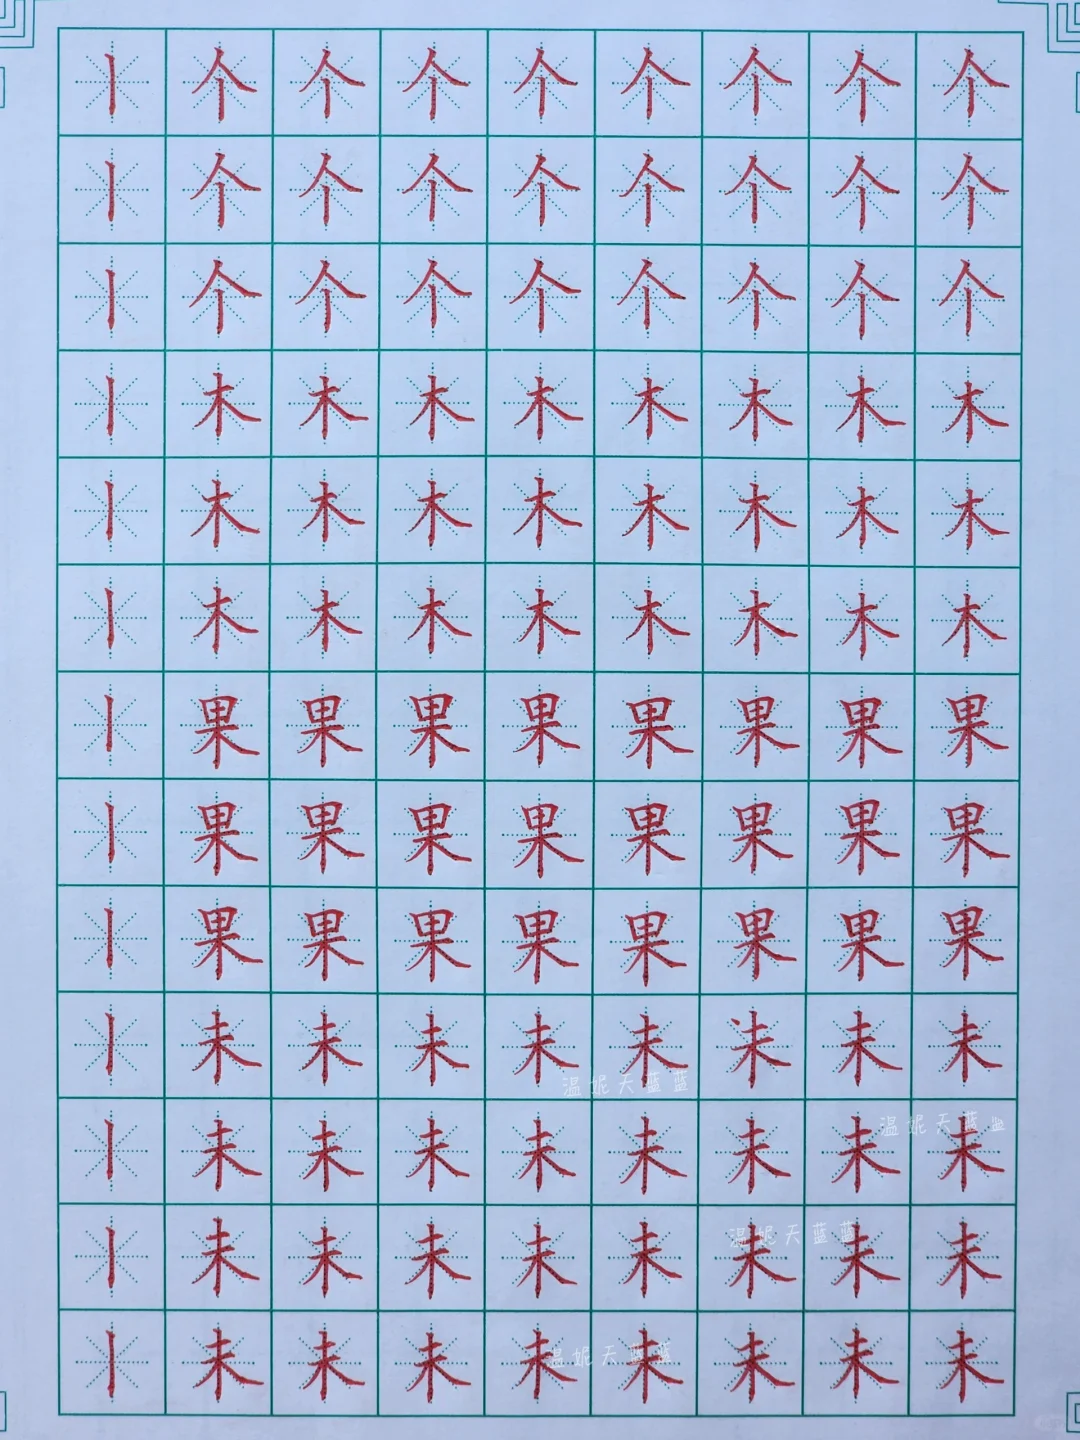 丨个个个个个个个个
丨个个个个个个个个
丨个个个个个个个个
丨木木木木木木木木
丨木木木木木木木木
丨木木木木木木木木
丨果果果果果果果果
丨果果果果果果果果
丨果果果果果果果果
丨未未未未未未未未
温妮天蓝蓝
丨未未未未未未未未
温妮天蓝蓝
丨未未未未未未未未
温妮天蓝蓝
丨未未未未未未未未
温妮天蓝蓝